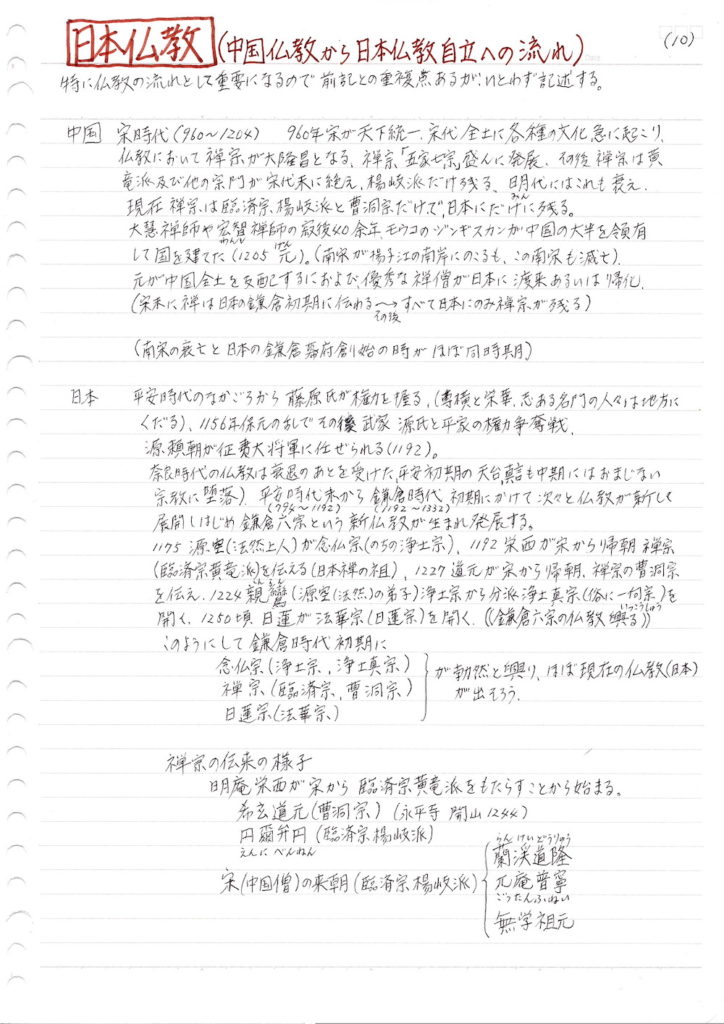 日本仏教 (中国仏教から日本仏教自立への流れ)
(10)
特に仏教の流れとして重要になるので前記との重複点あるがいとわず記述する。
中国 宋時代(960～1204) 960年宋が天下統一、宋代全土に各種の文化急に起こり、
仏教において禅宗が大隆昌となる、禅宗「五家七宗」盛んに発展、その後禅宗は黄
竜派及び他の宗門が宋代末に絶え、楊岐派だけ残る、明代にはこれも衰え、
みん
現在禅宗は臨済宗、楊岐派と曹洞宗だけで、日本にだけに残る。
大慧禅師や宏智禅師の寂後40余年モウコのジンギスカンが中国の大半を領有
わんし げん
して国を建てた(1205 元)。(南宋が揚子江の南岸にのこるも、この南宋も滅亡)、
元が中国全土を支配するにおよび、優秀な禅僧が日本に渡来あるいは帰化、
(宋末に禅は日本の鎌倉初期に伝わる→すべて日本にのみ禅宗が残る)
その後
(南宋の衰亡と日本の鎌倉幕府創始の時がほぼ同時期)
日本 平安時代のなかごろから藤原氏が権力を握る、(専横と栄華、志ある名門の人々は地方に
くだる)、1156年保元の乱でその後 武家 源氏と平家の権力争奪戦、
源頼朝が征夷大将軍に任ぜられる(1192)。
奈良時代の仏教は衰退のあとを受けた、平安初期の天台、真言も中期にはおまじない
宗教に堕落) 平安時代末から 鎌倉時代 初期にかけて次々と仏教が新しく
(794～1192) (1192～1332)
展開しはじめ鎌倉六宗という新仏教が生まれ発展する。
1175 源空(法然上人)が念仏宗(のちの浄土宗)、1192 栄西が宋から帰朝 禅宗
(臨済宗黄竜派)を伝える(日本禅の祖)、1227 道元が宋から帰朝、禅宗の曹洞宗
しんらん
を伝え、1224 親鸞(源空(法然)の弟子)浄土宗から分派浄土真宗(俗に一向宗)を
いっこうしゅう
開く、1250頃 日蓮が法華宗(日蓮宗)を開く、《鎌倉六宗の仏教興る》
このようにして鎌倉時代初期に
念仏宗(浄土宗、浄土真宗)
禅宗(臨済宗、曹洞宗)
日蓮宗(法華宗)
が勃然と興り、ほぼ現在の仏教(日本)
が出そろう。
禅宗の伝来の様子
明庵栄西が宋から臨済宗黄竜派をもたらすことから始まる。
希玄道元(曹洞宗) (永平寺 開山 1244)
円爾弁円(臨済宗楊岐派)
えんに べんねん
宋(中国僧)の来朝(臨済宗楊岐派)
らんけいどうりゅう
蘭渓道隆
兀庵普寧
ごったんふねい
無学祖元